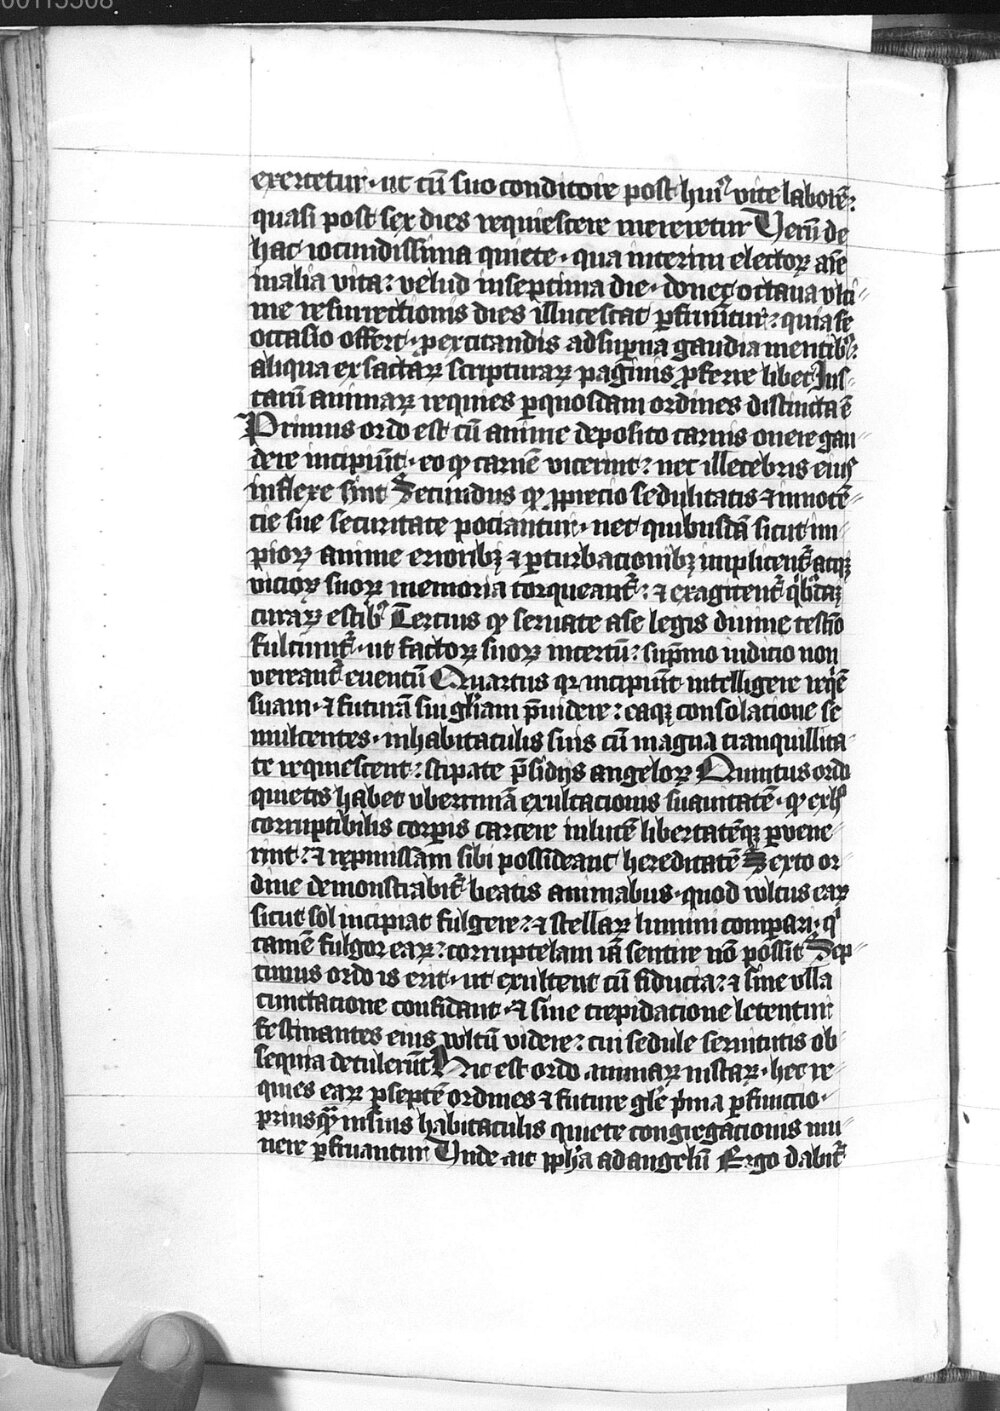 00115508
exercetur · ut cū suo conditore post hui⁹ vite laborē:
quasi post sex dies requiescere mereretur Verū de
hac iocundissima quiete · qua interim electoꝝ aīe
malia vita: velud in septima die · donec octaua vlti
me resurrectionis dies illucescat ꝑfruūtur: quia se
occasio offert · ꝓ excitandis ad suꝑna gaudia mentibꝰ:
aliqua ex sacraꝝ scripturaꝝ paginis ꝓferre libet Jus
tarū animaꝝ requies ꝑ quosdam ordines distincta ē
Primus ordo est cū anime deposito carnis onere gau
dere incipiūt · eo ꝙ carnē vicerint: nec illecebris eius
inflexe sint Secundus ꝙ ꝓ precio sedulitatis ⁊ innocē
cie sue securitate pociantur · nec quibusdā sicut im
pioꝝ anime erroribꝫ ⁊ ꝑturbacionibꝫ implicent᷑ atqꝫ
vicioꝝ suoꝝ memoria torqueant᷑: ⁊ exagitent᷑ qͥbꝰdaꝫ
curaꝝ estibꝰ Tercius ꝙ seruate a se legis diuine testīo
fulciunt᷑ · ut factoꝝ suoꝝ incertū: supmo iudicio non
vereant᷑ euentū Quartus qꝛ incipiūt intelligere reqͥē
suam · ⁊ futurā sui gl̄iam p̄uidere: eaqꝫ consolacione se
mulcentes · in habitaculis suis cū magna tranquillita
te requiescent: stipate p̄sidijs angeloꝝ Quintus ordo
quietis habet vberrimā exultacionis suauitatē · ꝙ ex hͦ
corruptibilis corꝑis carcere in lucē libertatēqꝫ ꝑuene
rint: ⁊ repmissam sibi possideant hereditatē Sexto or
dine demonstrabit᷑ beatis animabus · quod vultus eaꝝ
sicut sol incipiat fulgere: ⁊ stellaꝝ lumini comꝑari · qͥ
tamē fulgor eaꝝ: corruptelam iā sentire nō possit Sep
timus ordo is erit · ut exultent cū fiducia: ⁊ sine vlla
cunctacione confidant · ⁊ sine trepidacione letentur
festinantes eius vultū videre: cui sedule seruitutis ob
sequia detulerūt Hic est ordo animaꝝ iustaꝝ · hec re
quies eaꝝ ꝑ septē ordines ⁊ future gl̄e pͥma ꝑfunctio ·
priusqͣꝫ in suis habitaculis quiete congregacionis mu
nere ꝑfruantur Vnde ait ꝓph̄a ad angelū Ergo dabit᷑